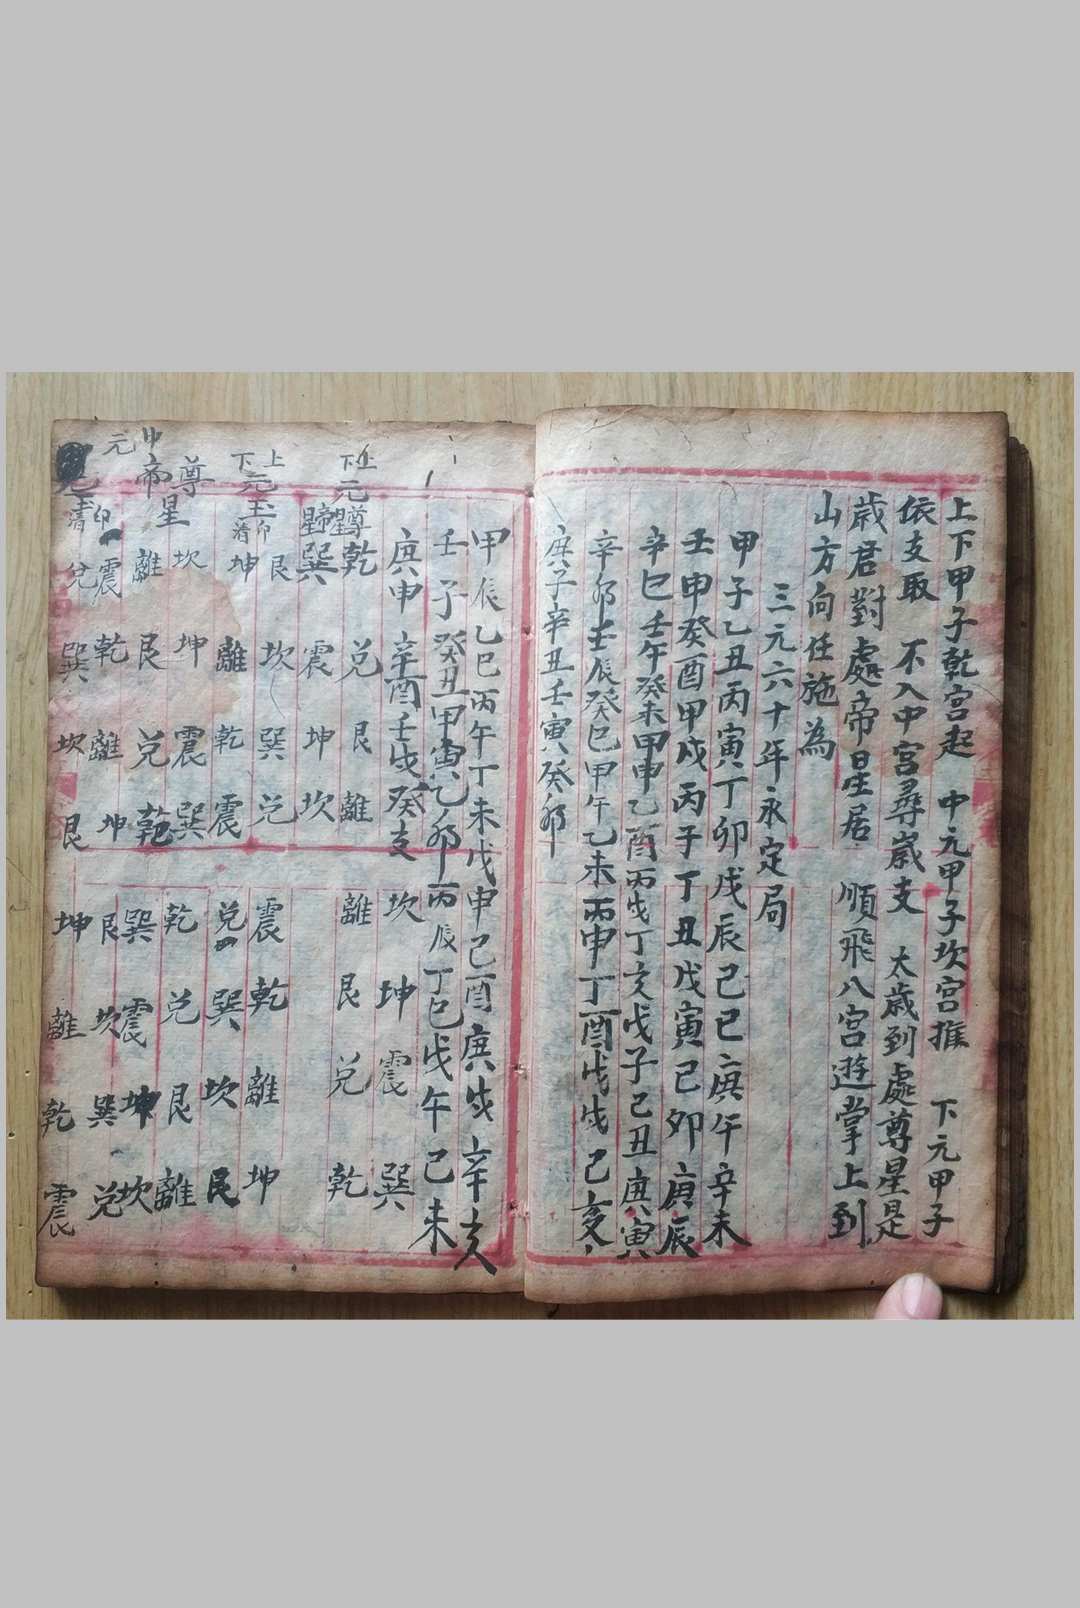 上下甲子乾宮起 中元甲子坎宮推 下元甲子
依支取 不入中宮尋歲支 太歲到處尊星是
歲君對處帝星居 順飛八宮遊掌上到
山方向任施為
三元六十年永定局
甲子乙丑丙寅丁卯戊辰己巳庚午辛未
壬申癸酉甲戌丙子丁丑戊寅己卯庚辰
辛巳壬午癸未甲申乙酉丙戌丁亥戊子己丑庚寅
辛卯壬辰癸巳甲午乙未丙申丁酉戊戌己亥
庚子辛丑壬寅癸卯
甲辰乙巳丙午丁未戊申己酉庚戌辛亥
壬子癸丑甲寅乙卯丙辰丁巳戊午己未
庚申辛酉壬戌癸支
上下元
尊星 乾 兌 艮 離 坎 坤 震 巽
帝星 巽 震 坤 坎 離 艮 兌 乾
上下元
玉印 艮 坎 巽 兌 震 乾 離 坤
清 坤 離 乾 震 兌 巽 坎 艮
中元
尊星 坎 坤 震 巽 乾 兌 艮 離
帝 離 艮 兌 乾 巽 震 坤 坎
印 震 乾 離 坤 艮 坎 巽 兌
清 兌 巽 坎 艮 坤 離 乾 震